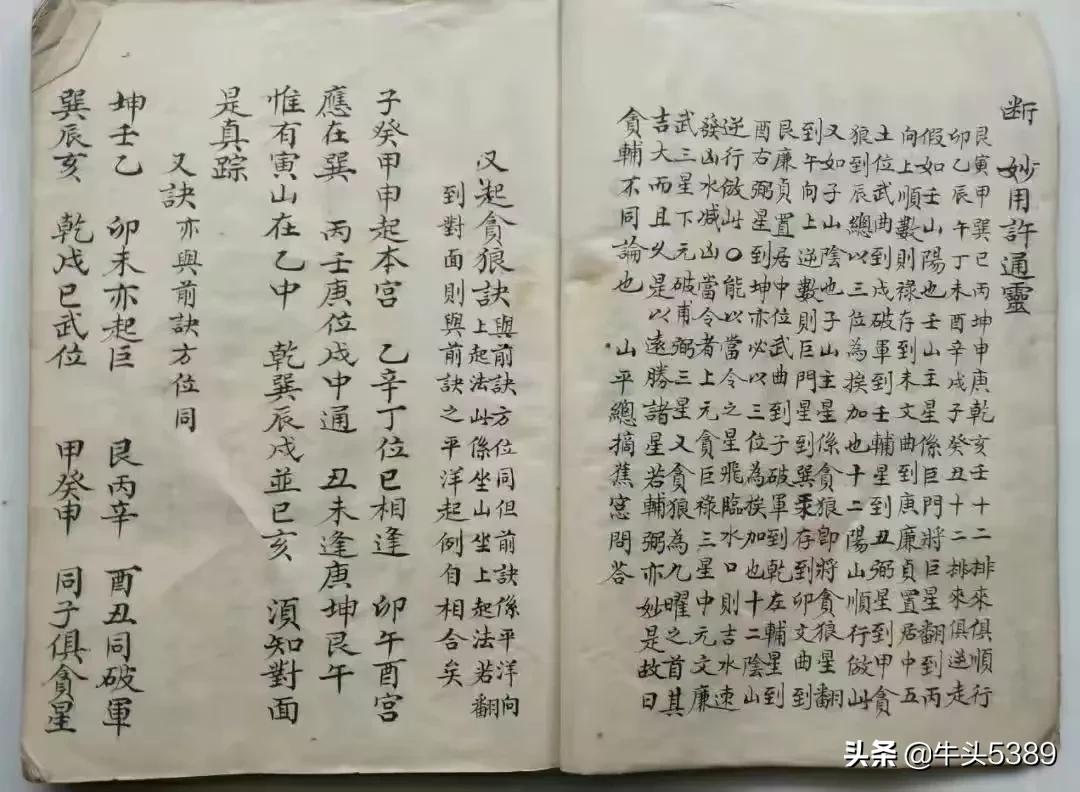 断 妙用許通靈
艮寅甲巽巳丙坤申庚乾亥壬十二排來俱順行
卯乙辰午丁未酉辛戌子癸丑十二排來俱逆走
假如壬山陽也壬山主星係巨門將巨星翻到丙
向上順數則祿存到未文曲到庚廉貞置居中五
土位武曲到戌破軍到壬輔星到丑弼星到甲貪
狼到辰總以三位為挨加也十二陽山順行做此
又如子山陰也子山主星係貪狼卽將貪狼星翻
到午向上逆數則巨門星到巽祿存到卯文曲到
艮廉貞置居中位武曲到子破軍到乾左輔星到
酉右弼星到坤亦必以三位為挨加也十二陰山
逆行做此〇能以當令之星飛臨水口則吉水速
發山水減凶當令者上元貪巨祿三星中元文廉
武三星下元破甫弼三星又貪狼為九曜之首其
吉大而且久是以遠勝諸星若輔弼亦妙是故曰
貪輔不同論也 山平總摘蕉窓問答
又起貪狼訣與前訣方位同但前訣係平洋向
上起法此係坐山坐上起法若翻
到對面則與前訣之平洋起例自相合矣
子癸甲申起本宮 乙辛丁位巳相逢 卯午酉宮
應在巽 丙壬庚位戌中通 丑未逢庚坤艮午
惟有寅山在乙中 乾巽辰戌並巳亥 須知對面
是真踪
又訣亦與前訣方位同
坤壬乙 卯未亦起巨 艮丙辛 酉丑同破軍
巽辰亥 乾戌巳武位 甲癸申 同子俱貪星
头条 @牛头5389